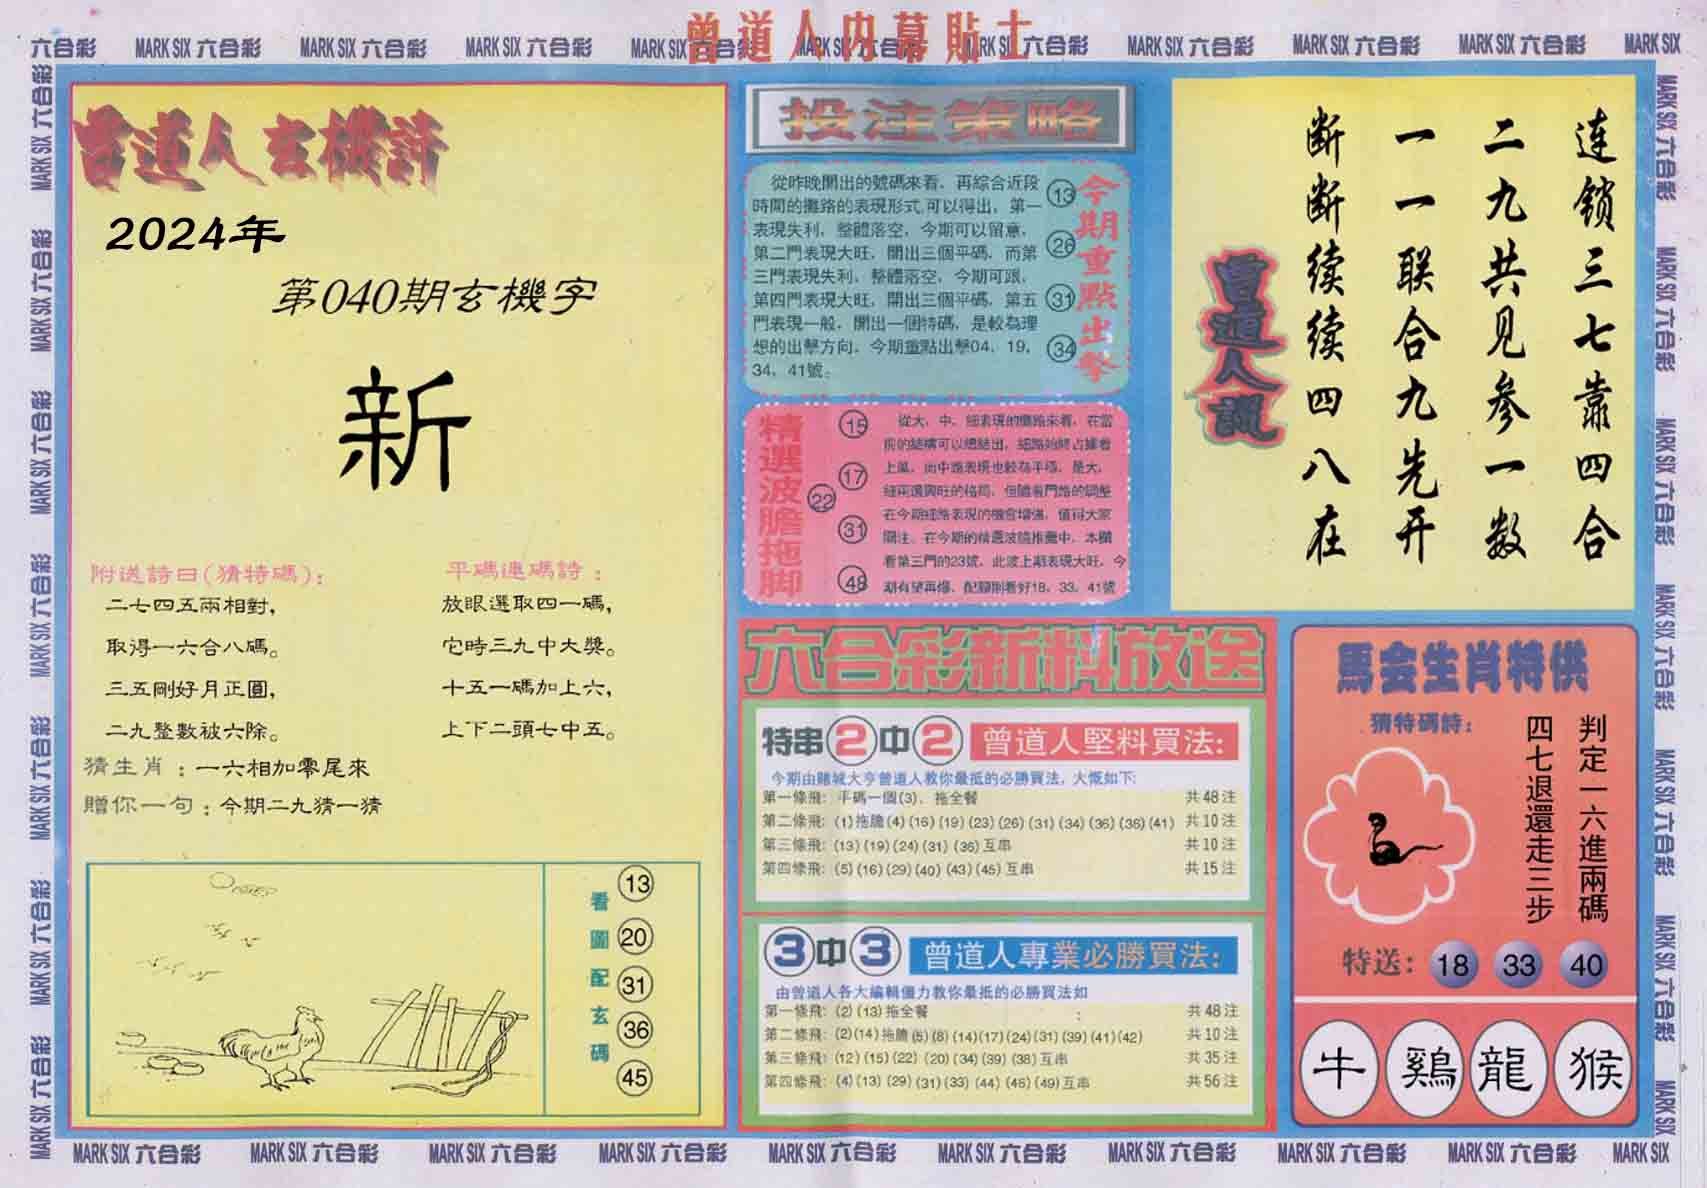 曾道人内幕貼士
六合彩 MARK SIX 六合彩 MARK SIX 六合彩 MARK SIX 六合彩 MARK SIX 六合彩 MARK SIX 六合彩 MARK SIX 六合彩 MARK SIX 六合彩 MARK SIX 六合彩 MARK SIX
曾道人玄機詩
2024年
第040期玄機字
新
附送詩曰(猜特碼):
二七四五兩相對,
取得一六合八碼。
三五剛好月正圓,
二九整數被六除。
平碼連碼詩:
放眼選取四一碼,
它時三九中大獎。
十五一碼加上六,
上下二頭七中五。
猜生肖:一六相加零尾來
贈你一句:今期二九猜一猜
看圖配玄碼
13
20
31
36
45
投注策略
從昨晚開出的號碼來看，再綜合近段
時間的攤路的表現形式,可以得出，第一
表現失利，整體落空，今期可以留意，
第二門表現大旺，開出三個平碼，而第
三門表現失利，整體落空，今期可跟，
第四門表現大旺，開出三個平碼，第五
門表現一般，開出一個特碼，是較為理
想的出擊方向，今期重點出擊04，19，
34，41號。
13
26
31
34
今期重點出擊
精選波膽拖脚
15
17
22
31
48
從大，中，細表現的攤路來看，在當
前的結構可以總結出，細路始終占據着
上風，而中路表現也較為平穩，是大，
細兩邊興旺的格局，但隨着門路的調整
在今期細路表現的機會增強，值得大家
關注。在今期的精選波膽推薦中，本欄
看第三門的23號，此波上期表現大旺，今
期有望再爆，配腳則看好18，33，41號
连锁三七靠四合
二九共见参一数
一一联合九先开
断断续续四八在
六合彩新料放送
特串2中2 曾道人堅料買法:
今期由賭城大亨曾道人教你最抵的必勝買法，大慨如下:
第一條飛: 平碼一個(3)，拖全餐 共48注
第二條飛: (1)拖膽(4)(16)(19)(23)(26)(31)(34)(36)(36)(41) 共10注
第三條飛: (13)(19)(24)(31)(36)互串 共10注
第四條飛: (5)(16)(29)(40)(43)(45)互串 共15注
3中3 曾道人專業必勝買法:
由曾道人各大編輯僵力教你最抵的必勝買法如
第一條飛: (2)(13)拖全餐 共48注
第二條飛: (2)(14)拖膽(5)(8)(14)(17)(24)(31)(39)(41)(42) 共10注
第三條飛: (12)(15)(22)(20)(34)(39)(38)互串 共35注
第四條飛: (4)(13)(29)(31)(33)(44)(46)(49)互串 共56注
馬会生肖特供
猜特碼詩:
判定一六進兩碼
四七退還走三步
特送: 18 33 40
牛 鷄 龍 猴
MARK SIX 六合彩 MARK SIX 六合彩 MARK SIX 六合彩 MARK SIX 六合彩 MARK SIX 六合彩 MARK SIX 六合彩 MARK SIX 六合彩 MARK SIX 六合彩 MARK SIX 六合彩 MARK SIX